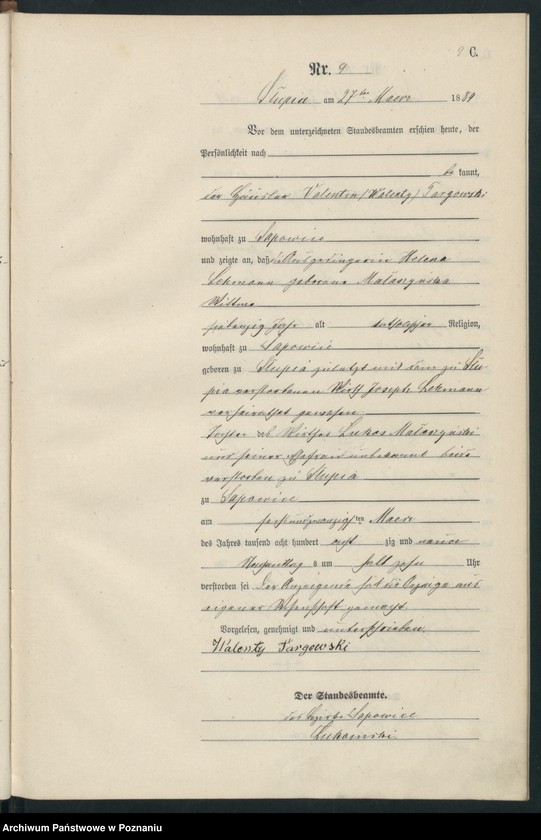 9 C.
Nr. 9
Słupia am 27ten Maerz 1889
Vor dem unterzeichneten Standesbeamten erschien heute, der
Persönlichkeit nach
be kannt,
der Häusler Valentin (Walenty) Targowski
wohnhaft zu Sapowice
und zeigte an, daß die Ausgedingerin Helena
Lehmann geborene
Wittwe
siebenzig Jahr alt katholischer Religion,
wohnhaft zu Sapowice
geboren zu Słupia zuletzt mit dem zu Słu-
pia verstorbenen Wirth Joseph Lehmann
verheirathet gewesen
Tochter des Wirthes Lukas
und seiner Ehefrau unbekannt beide
verstorben zu Słupia
zu Sapowice
am sechsundzwanzigsten Maerz
des Jahres tausend acht hundert acht zig und neun
Nachmittag s um halb zehn Uhr
verstorben sei Der Anzeigende hat die Anzeige aus
eigener Wissenschaft gemacht.
Vorgelesen, genehmigt und unterschrieben.
Walenty Targowski
Der Standesbeamte.
des Bezirks Sapowice
Lukomski
Archiwum Państwowe w Poznaniu